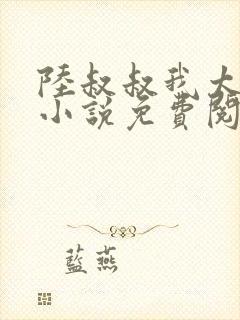 陸叔叔我大
小說免費閱
藍燕